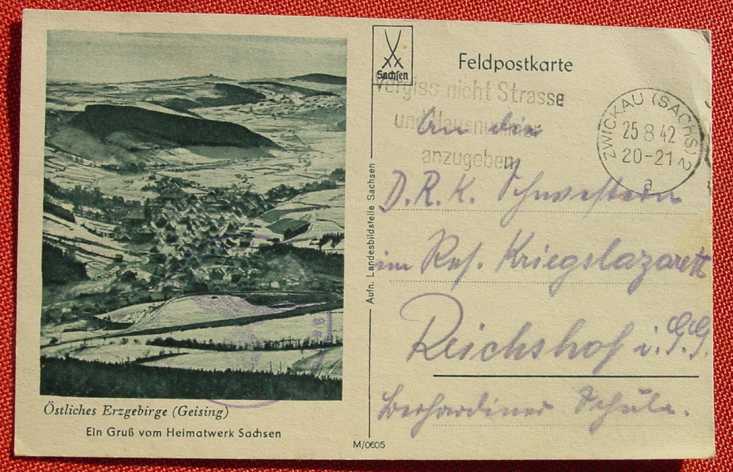 Sachsen
Feldpostkarte
Vergiss nicht Strasse
und Hausnummer
anzugeben
ZWICKAU (SACHS) 2
25.8.42
20-21
a
An die
D.R.K. Schwestern
im Res. Kriegslazarett
Reichshof i. G.G.
Berhardiner Schule.
Aufn. Landesbildstelle Sachsen
Östliches Erzgebirge (Geising)
Ein Gruß vom Heimatwerk Sachsen
M/0605